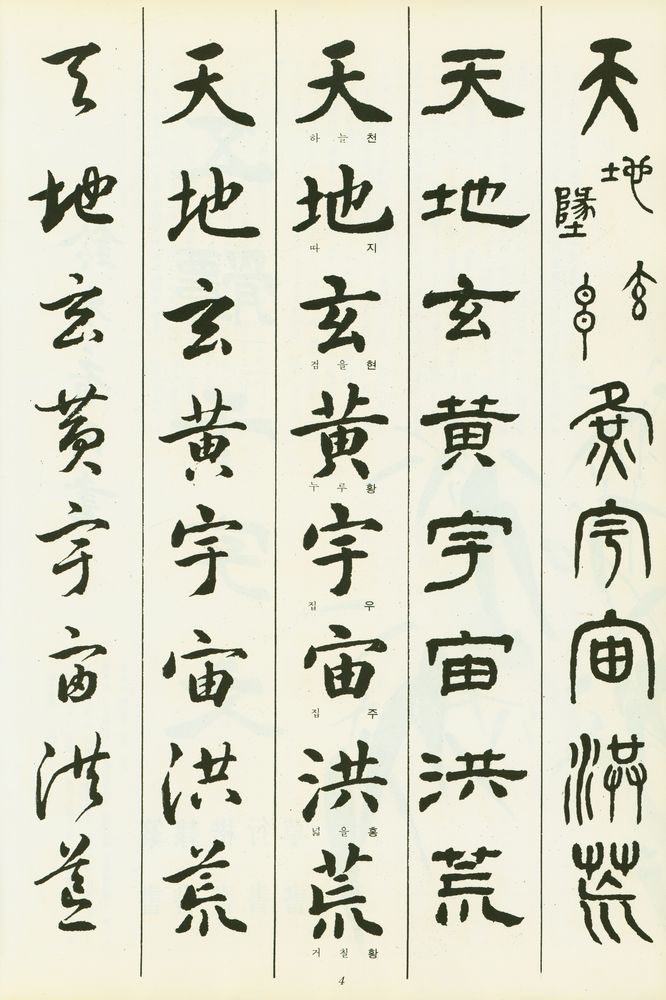 天地墬玄玄黃宇宙洪荒
天地玄黃宇宙洪荒
天
하 늘 천
地
따 지
玄
검 을 현
黃
누 루 황
宇
집 우
宙
집 주
洪
넓 을 홍
荒
거 칠 황
天地玄黃宇宙洪荒
天地玄黃宇宙洪荒
4